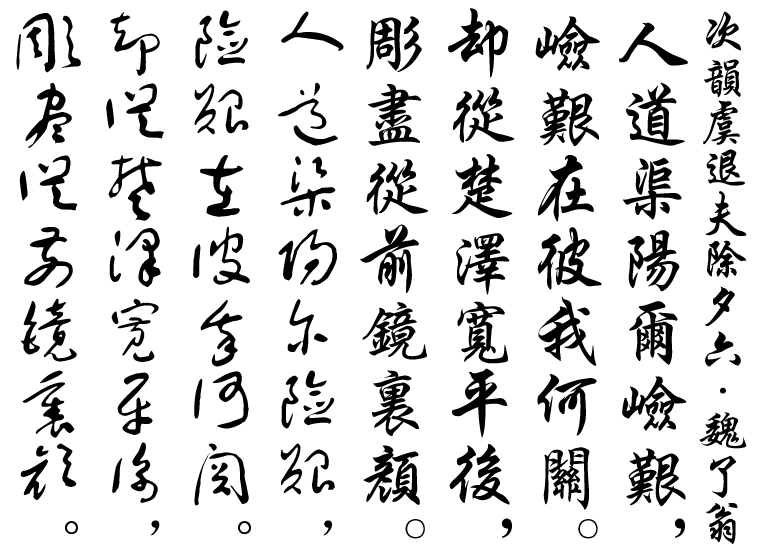 次韻虞退夫除夕六·魏了翁
人道渠陽爾嶮艱,
嶮艱在彼我何關。
却從楚澤寬平後,
彫盡從前鏡裏顏。
人道渠陽尔险艰,
险艰在彼我何関。
却從楚澤寛平後,
彫盡從前鏡裏顏。